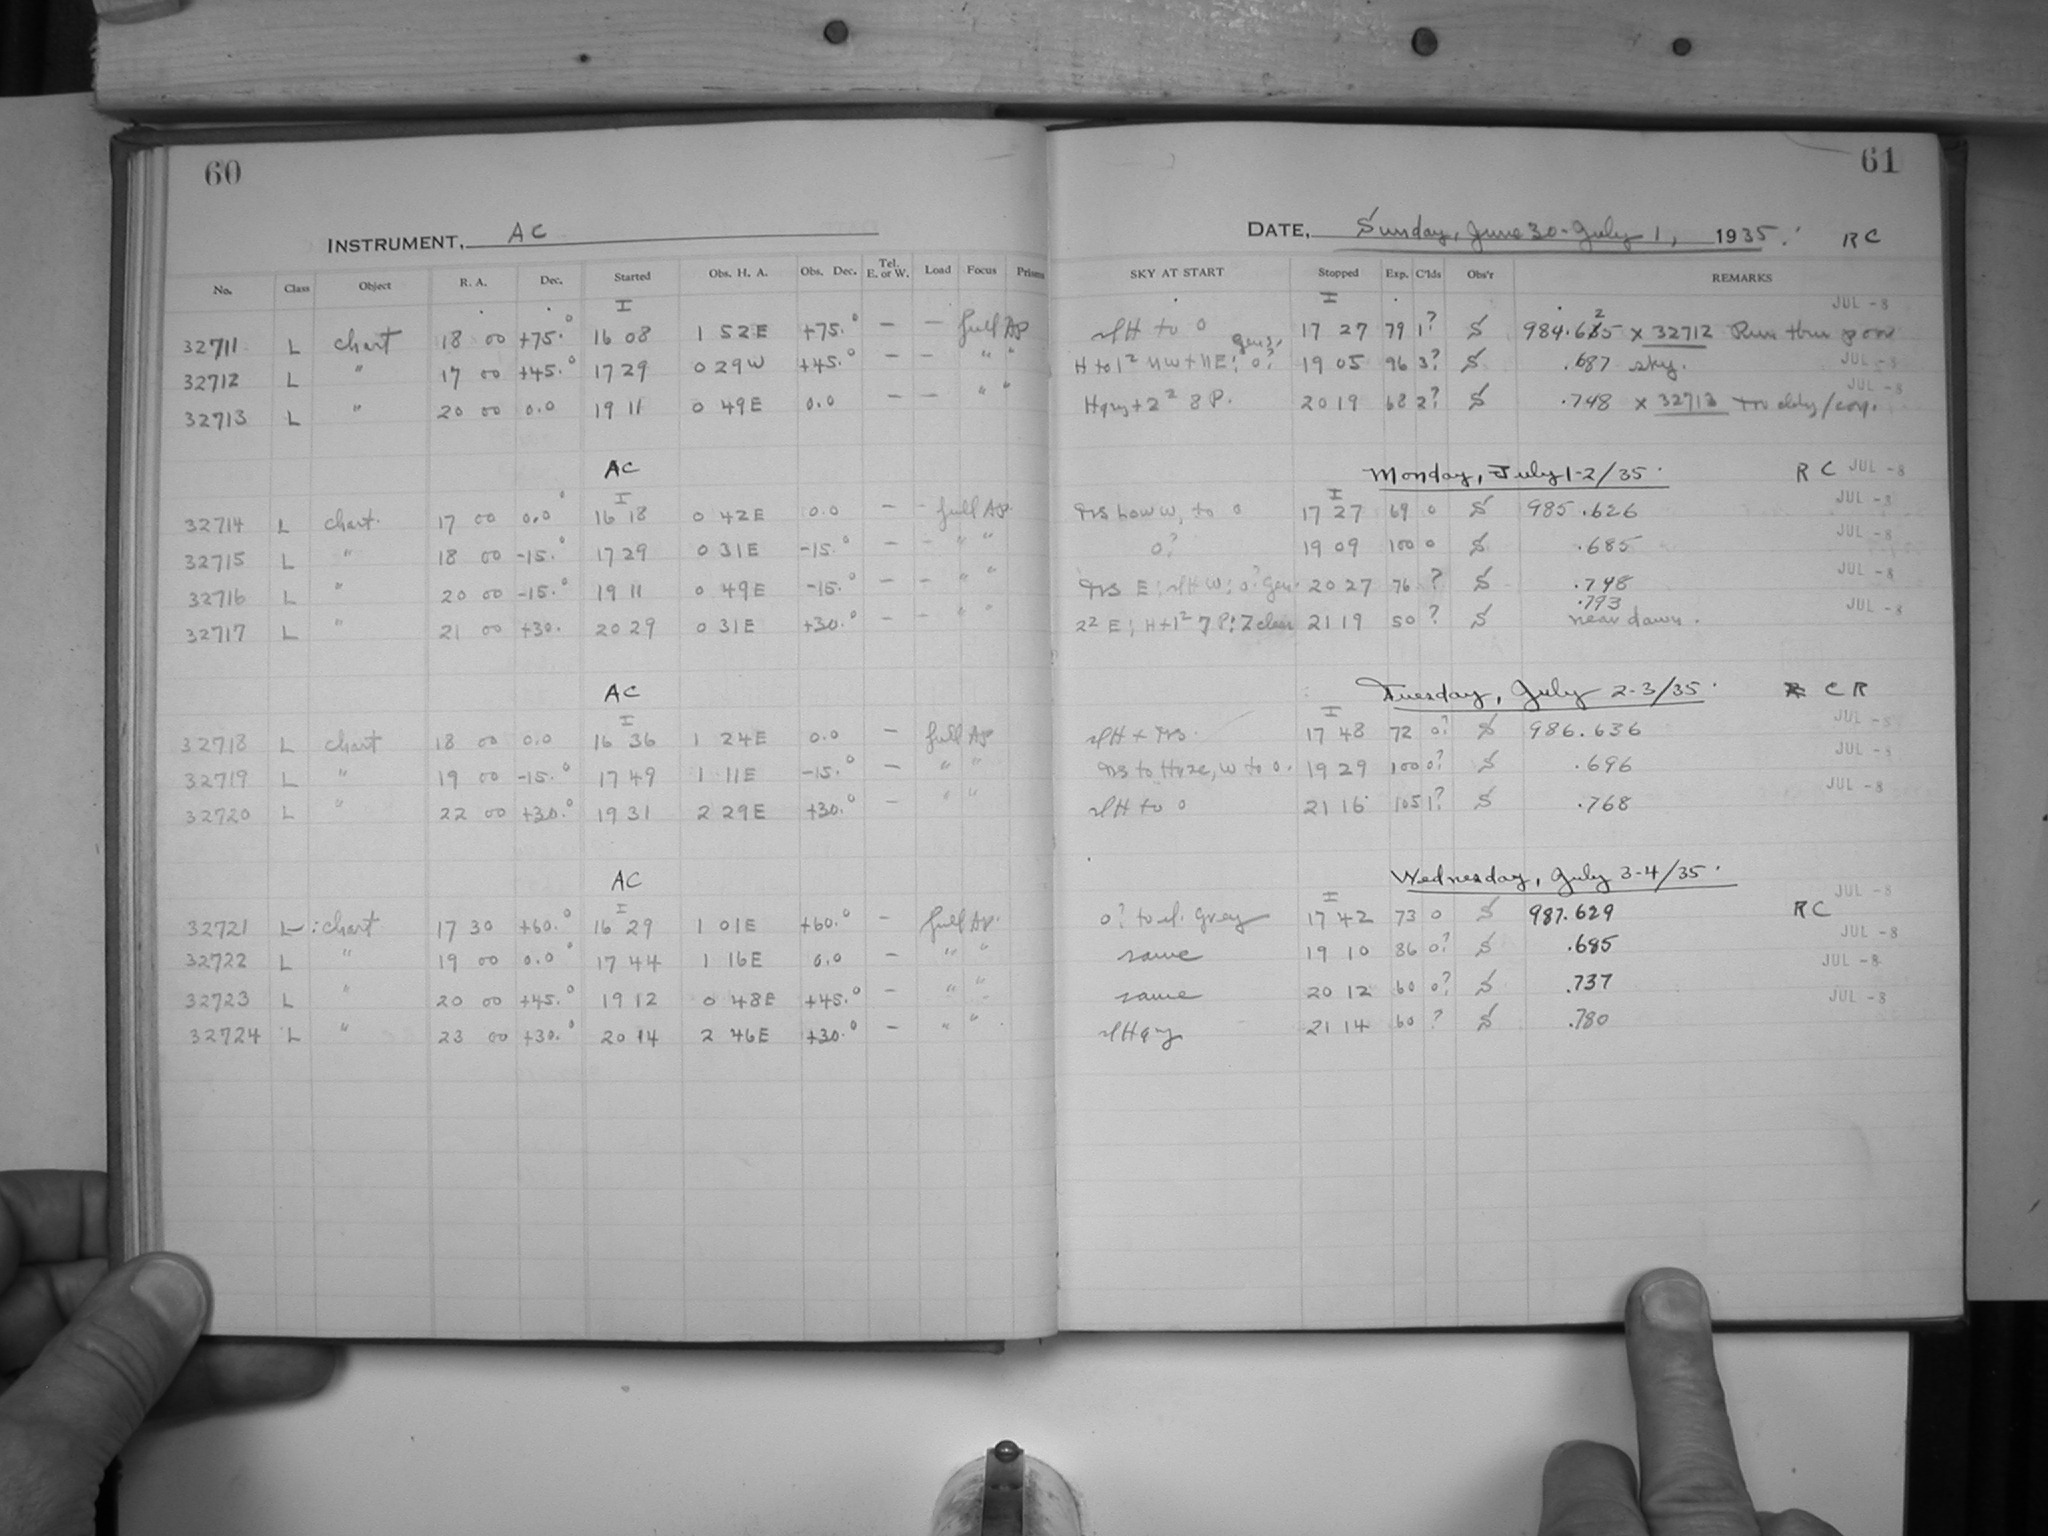 60
INSTRUMENT, AC
No. Class Object R. A. Dec. Started Obs. H. A. Obs. Dec. Tel. E. or W. Load Focus Prisms
I
32711 L chart 18 00 +75.° 16 08 1 52E +75.° — — full Ap
32712 L " 17 00 +45.° 17 29 0 29W +45.° — — " "
32713 L " 20 00 0.0 19 11 0 49E 0.0 — — " "
AC
I
32714 L chart. 17 00 0.0° 16 18 0 42E 0.0 — - full Ap.
32715 L " 18 00 -15.° 17 29 0 31E -15.° — — " "
32716 L " 20 00 -15.° 19 11 0 49E -15.° — — " "
32717 L " 21 00 +30. 20 29 0 31E +30.° — — " "
AC
I
32718 L chart 18 00 0.0 16 36 1 24E 0.0 — full Ap
32719 L " 19 00 -15.° 17 49 1 11E -15.° — " "
32720 L " 22 00 +30.° 19 31 2 29E +30.° — " "
AC
I
32721 L : chart 17 30 +60.° 16 29 1 01E +60.° — full Ap.
32722 L " 19 00 0.0° 17 44 1 16E 0.0 — " "
32723 L " 20 00 +45.° 19 12 0 48E +45.° — " "
32724 L " 23 00 +30.° 20 14 2 46E +30.° — " "
61
DATE, Sunday, June 30 - July 1, 1935. RC
SKY AT START Stopped Exp. C'lds Obs'r REMARKS
I JUL -8
slH to 0 17 27 79 1? S 984.625 x 32712 Run thru poor
H to 1² NW + NE; 0? gen. 19 05 96 3? S .687 sky. JUL -8
H gry + 2² 8 P. 20 19 68 2? S .748 x 32713 JUL -8
Monday, July 1-2/35. RC JUL -8
I JUL -8
W, to 0 17 27 69 0 S 985.626
0? 19 09 100 0 S .685 JUL -8
E; slH W; 0? gen. 20 27 76 ? S .748 JUL -8
2² E; H+1² 7 P; Z clear 21 19 50 ? S .793 near dawn. JUL -8
Tuesday, July 2-3/35. CR
I JUL -8
slH + 17 48 72 0? S 986.636
to Haze, W to 0. 19 29 100 0? S .696 JUL -8
slH to 0 21 16 105 1? S .768 JUL -8
Wednesday, July 3-4/35.
I JUL -8
0? to sl. Grey 17 42 73 0 S 987.629 RC
same 19 10 86 0? S .685 JUL -8
same 20 12 60 0? S .737 JUL -8
slH gry 21 14 60 ? S .780 JUL -8